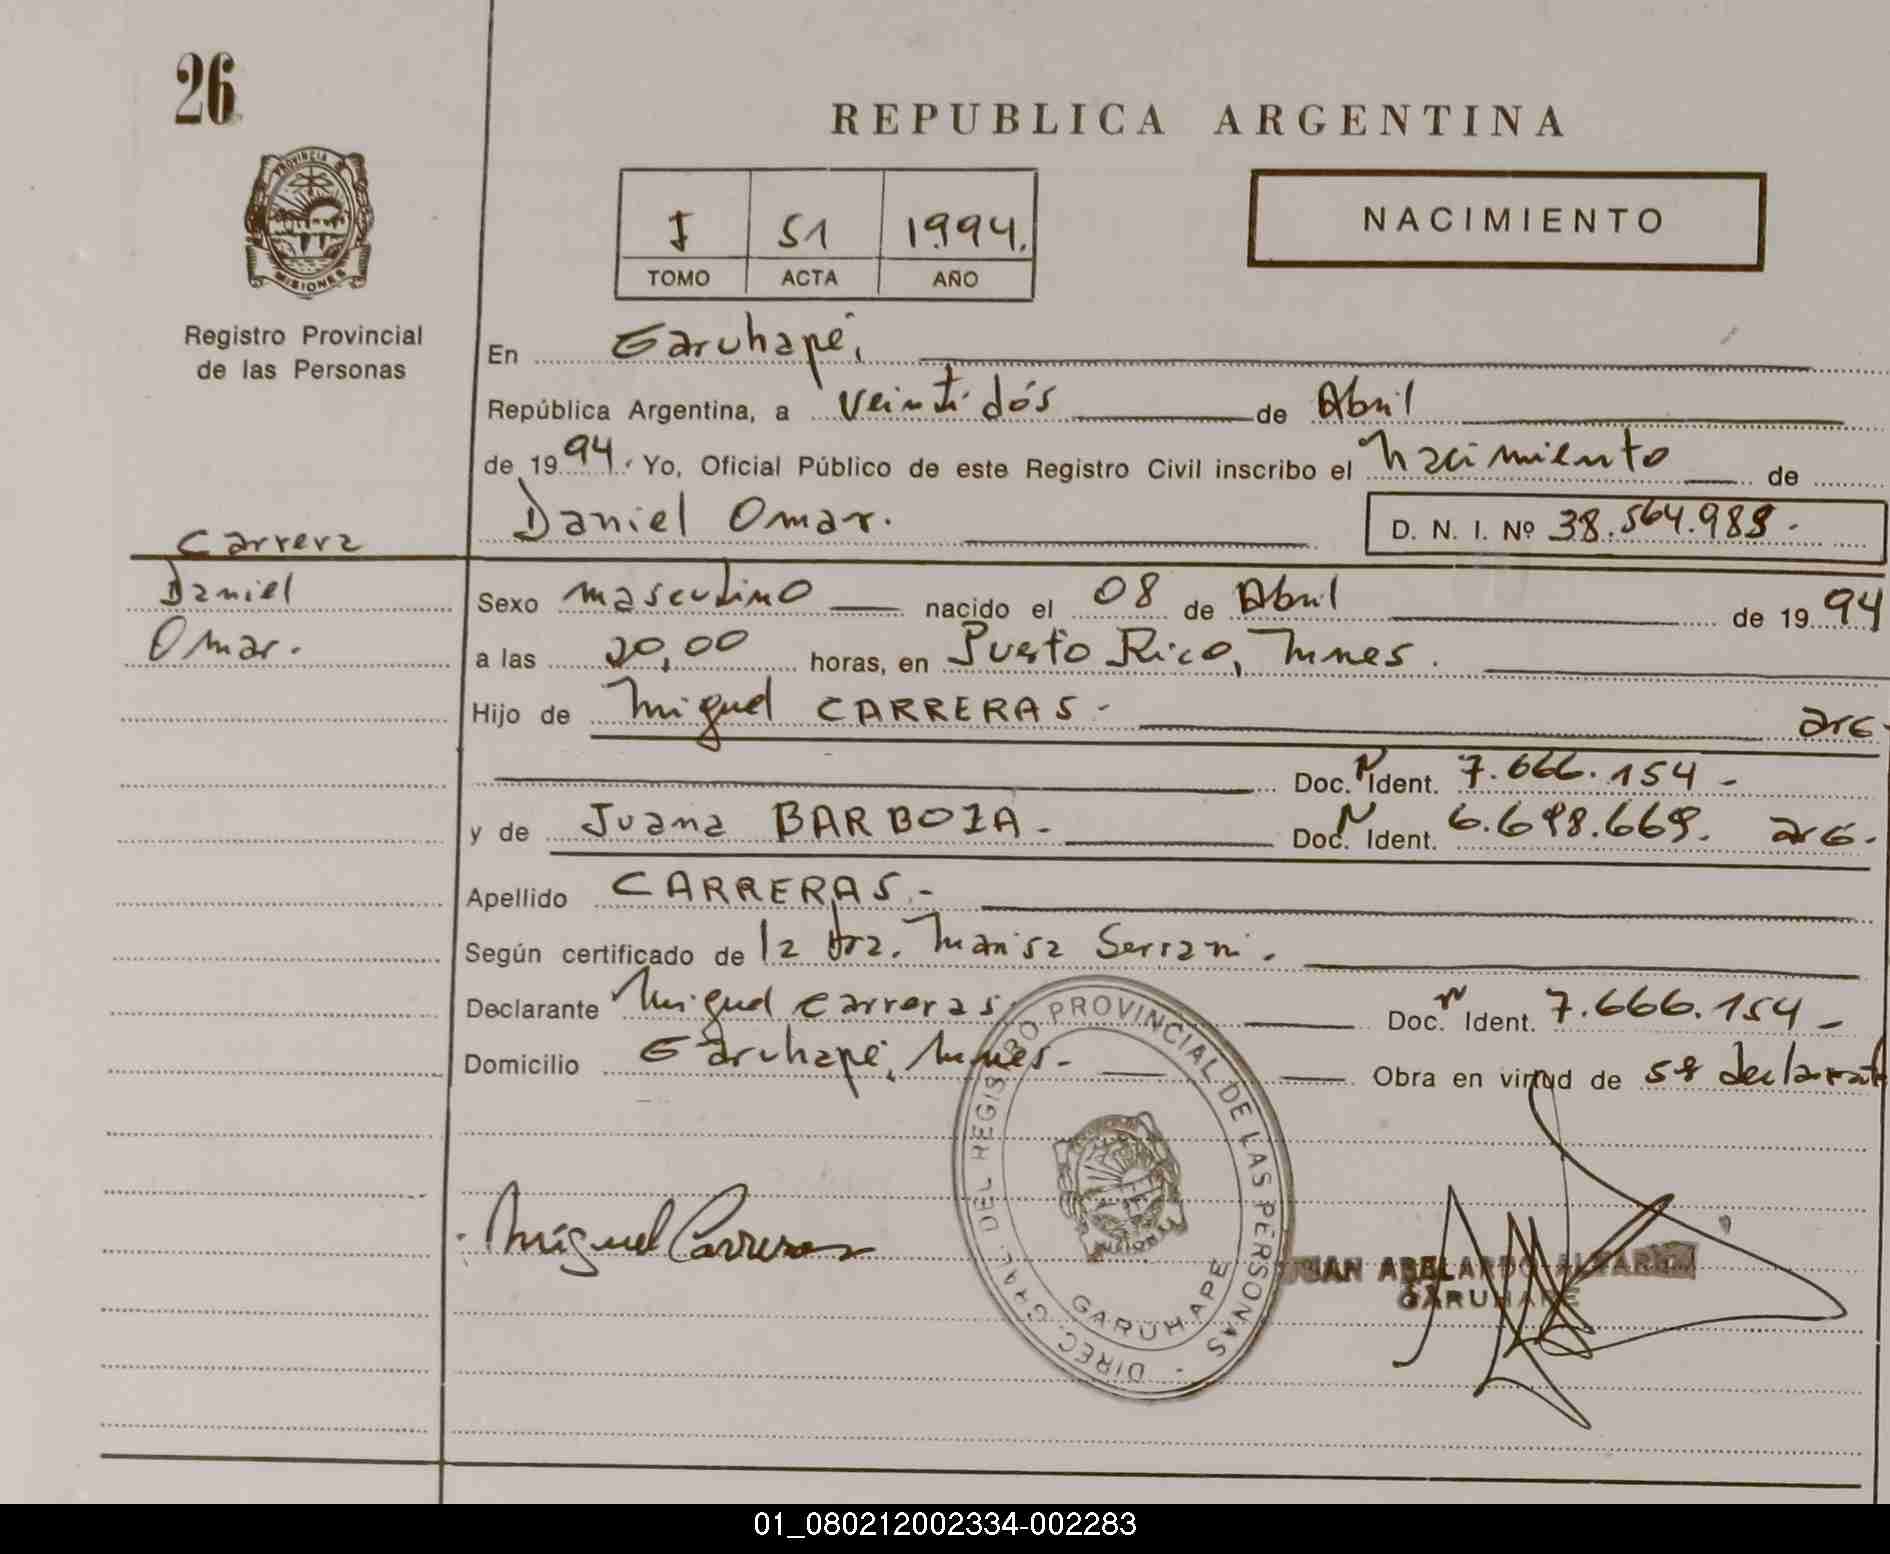 26
REPUBLICA ARGENTINA
PROVINCIA DE
MISIONES
Registro Provincial
de las Personas
I 51 1994.
TOMO ACTA AÑO
NACIMIENTO
En Garuhapé,
República Argentina, a Veintidós de Abril
de 1994. Yo, Oficial Público de este Registro Civil inscribo el Nacimiento de
Daniel Omar. D. N. I. Nº 38.564.989.-
Carrera
Daniel
Omar.
Sexo masculino nacido el 08 de Abril de 1994
a las 20,00 horas, en Puerto Rico, Mnes.
Hijo de Miguel CARRERAS.- arg-
Doc. N Ident. 7.666.154-
y de Juana BARBOZA.- Doc. N Ident. 6.698.669. arg.-
Apellido CARRERAS.-
Según certificado de la Dra. Marisa
Declarante Miguel Carreras Doc. N Ident. 7.666.154-
Domicilio Garuhapé, Mnes.- Obra en virtud de ser declarante
Miguel Carreras
DIREC. GRAL. DEL REGISTRO PROVINCIAL DE LAS PERSONAS - GARUHAPE
JUAN ABELARDO
GARUHAPE
01_080212002334-002283